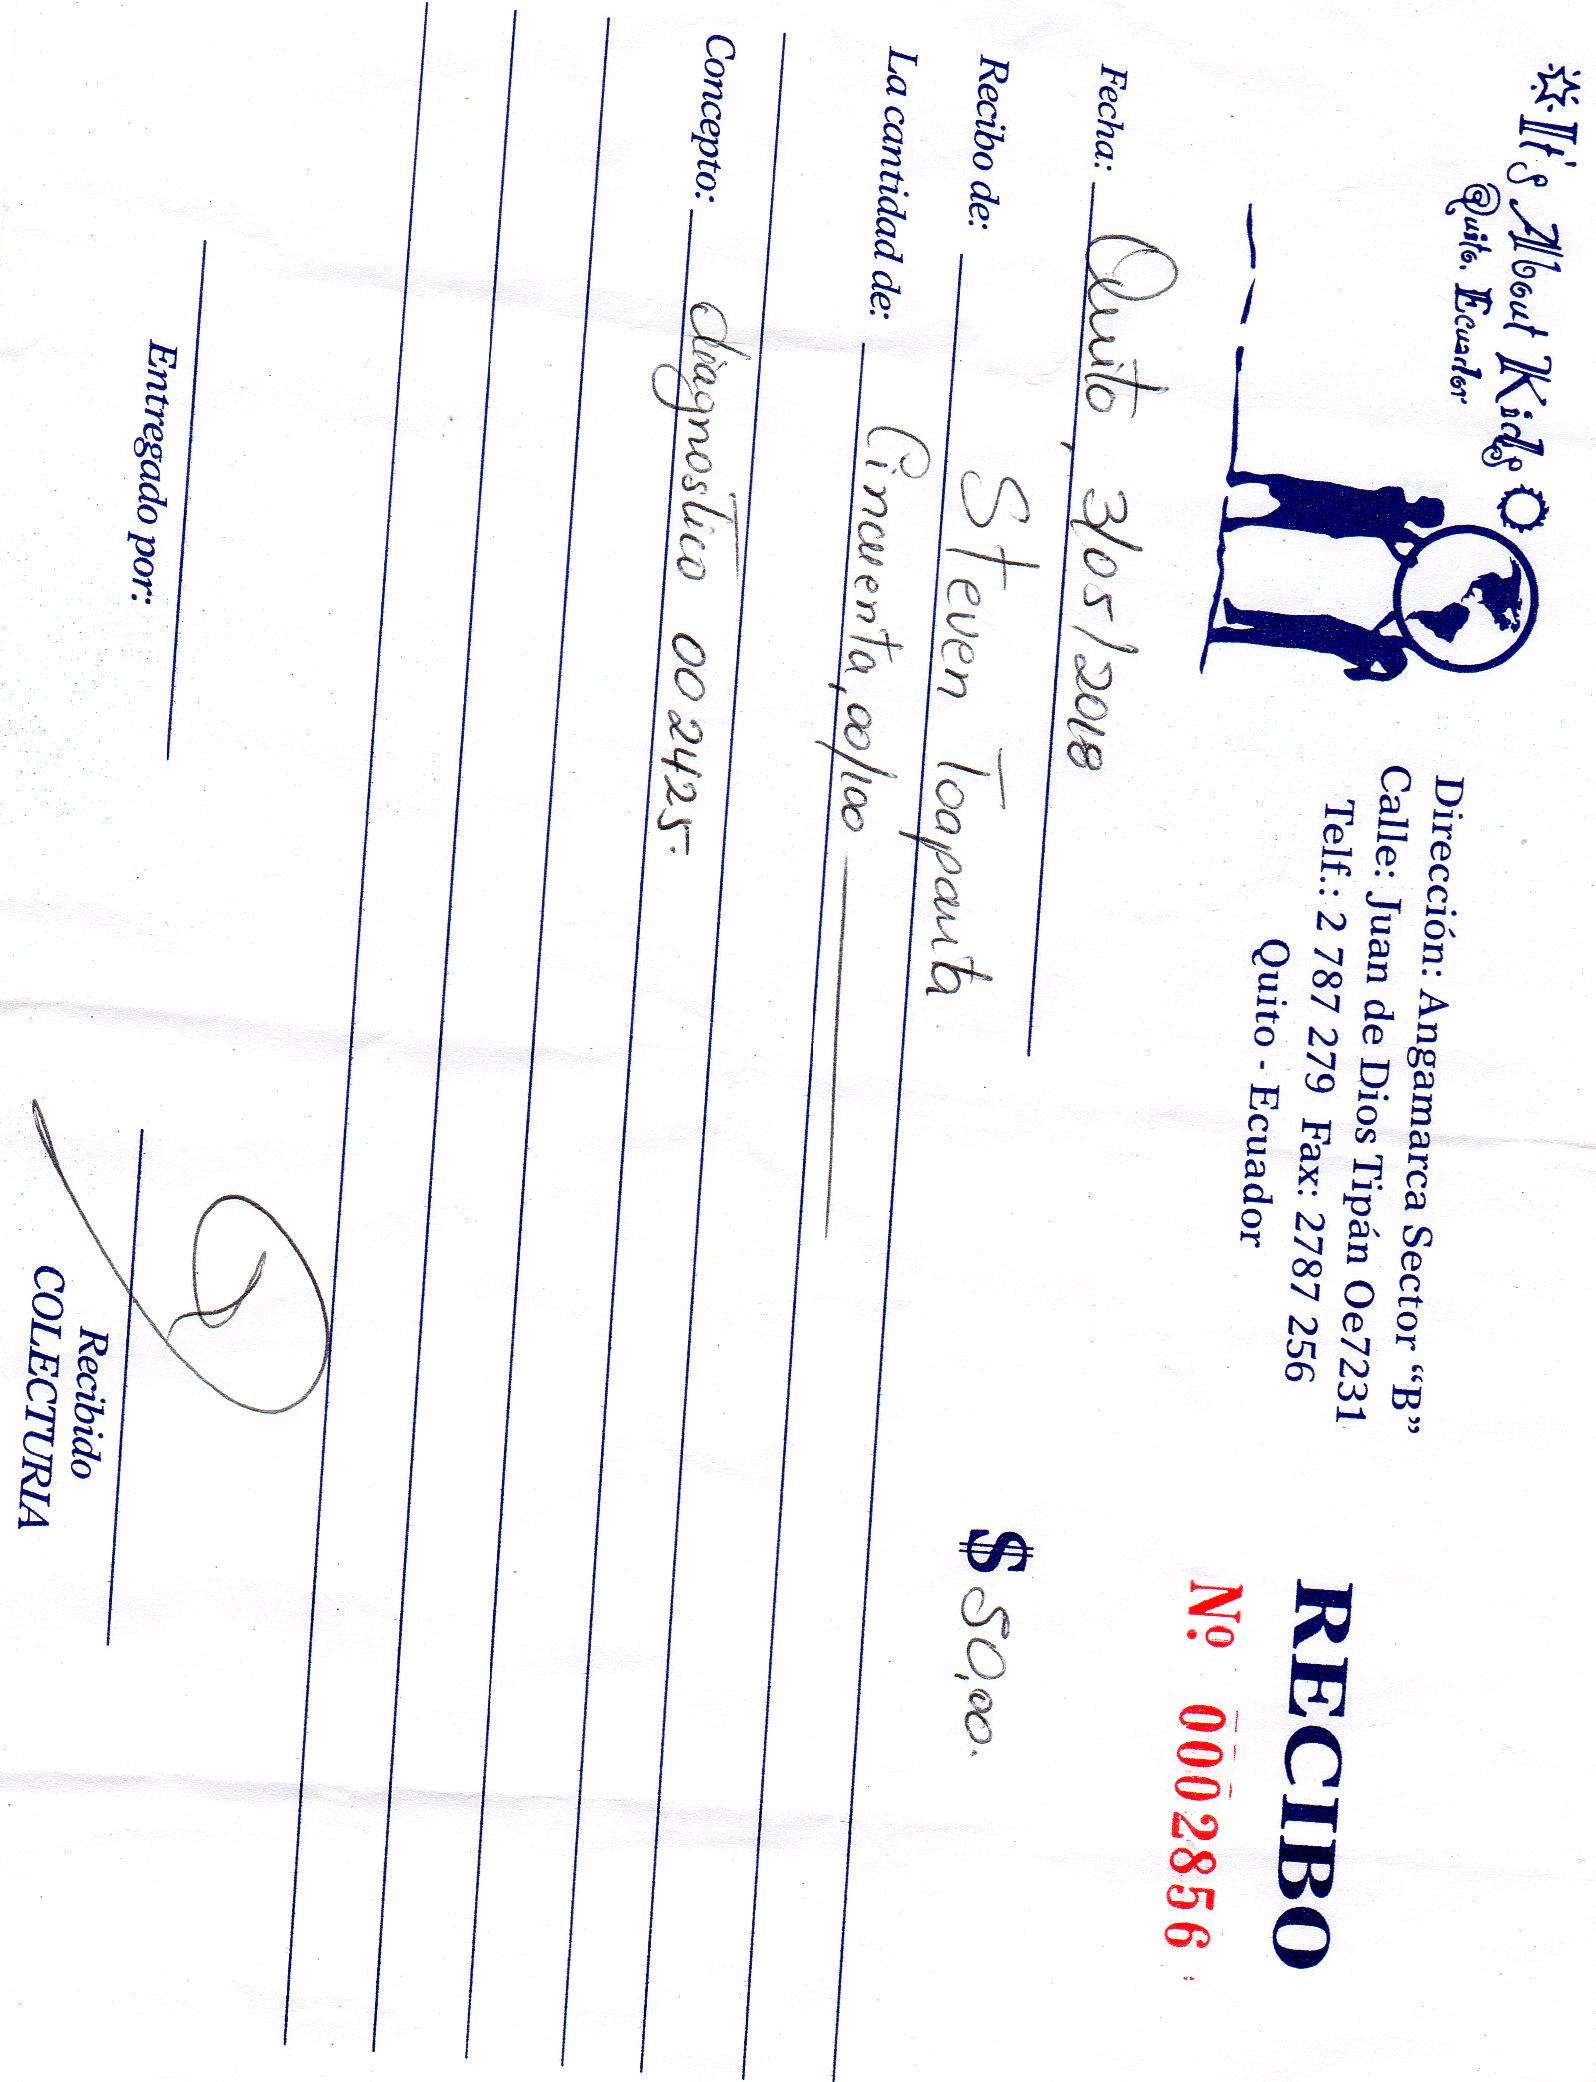 It's About Kids
Quito. Ecuador
Dirección: Angamarca Sector “B”
Calle: Juan de Dios Tipán Oe7231
Telf.: 2 787 279 Fax: 2787 256
Quito - Ecuador
RECIBO
Nº. 0002856
Fecha: Quito, 3/05/2018
Recibo de: Steven Toapanta $ 50,00.
La cantidad de: Cincuenta,00/100
Concepto: diagnostico 002425.
Entregado por:
Recibido
COLECTURIA